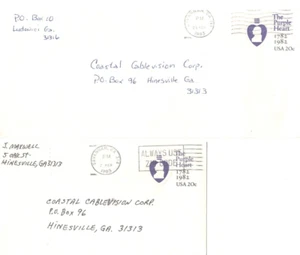 P.O. Box 10
Ludowici Ga.
31316
Coastal Cablevision Corp.
P.O. Box 96 Hinesville Ga.
31313
The
Purple
Heart
1782
1982
USA 20c
J. MAXWELL
HINESVILLE, GA 31313
ALWAYS USE
The
Purple
Heart
1782
1982
USA 20c
COASTAL CABLEVISION CORP.
P.O. BOX 96
HINESVILLE, GA. 31313